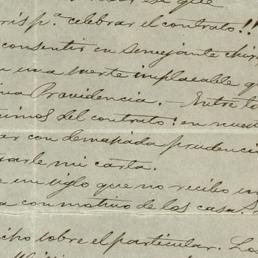 se que
ris pª celebrar el contrato!!
consentir en semejante chi
una suerte implacable q
na Providencia. Entre t
nimos del contrato: en nuest
ar con demasiada prudenci
rarle mi carta.
e un siglo que no recibo un
a con motivo de las casa. S
cho sobre el particular. La